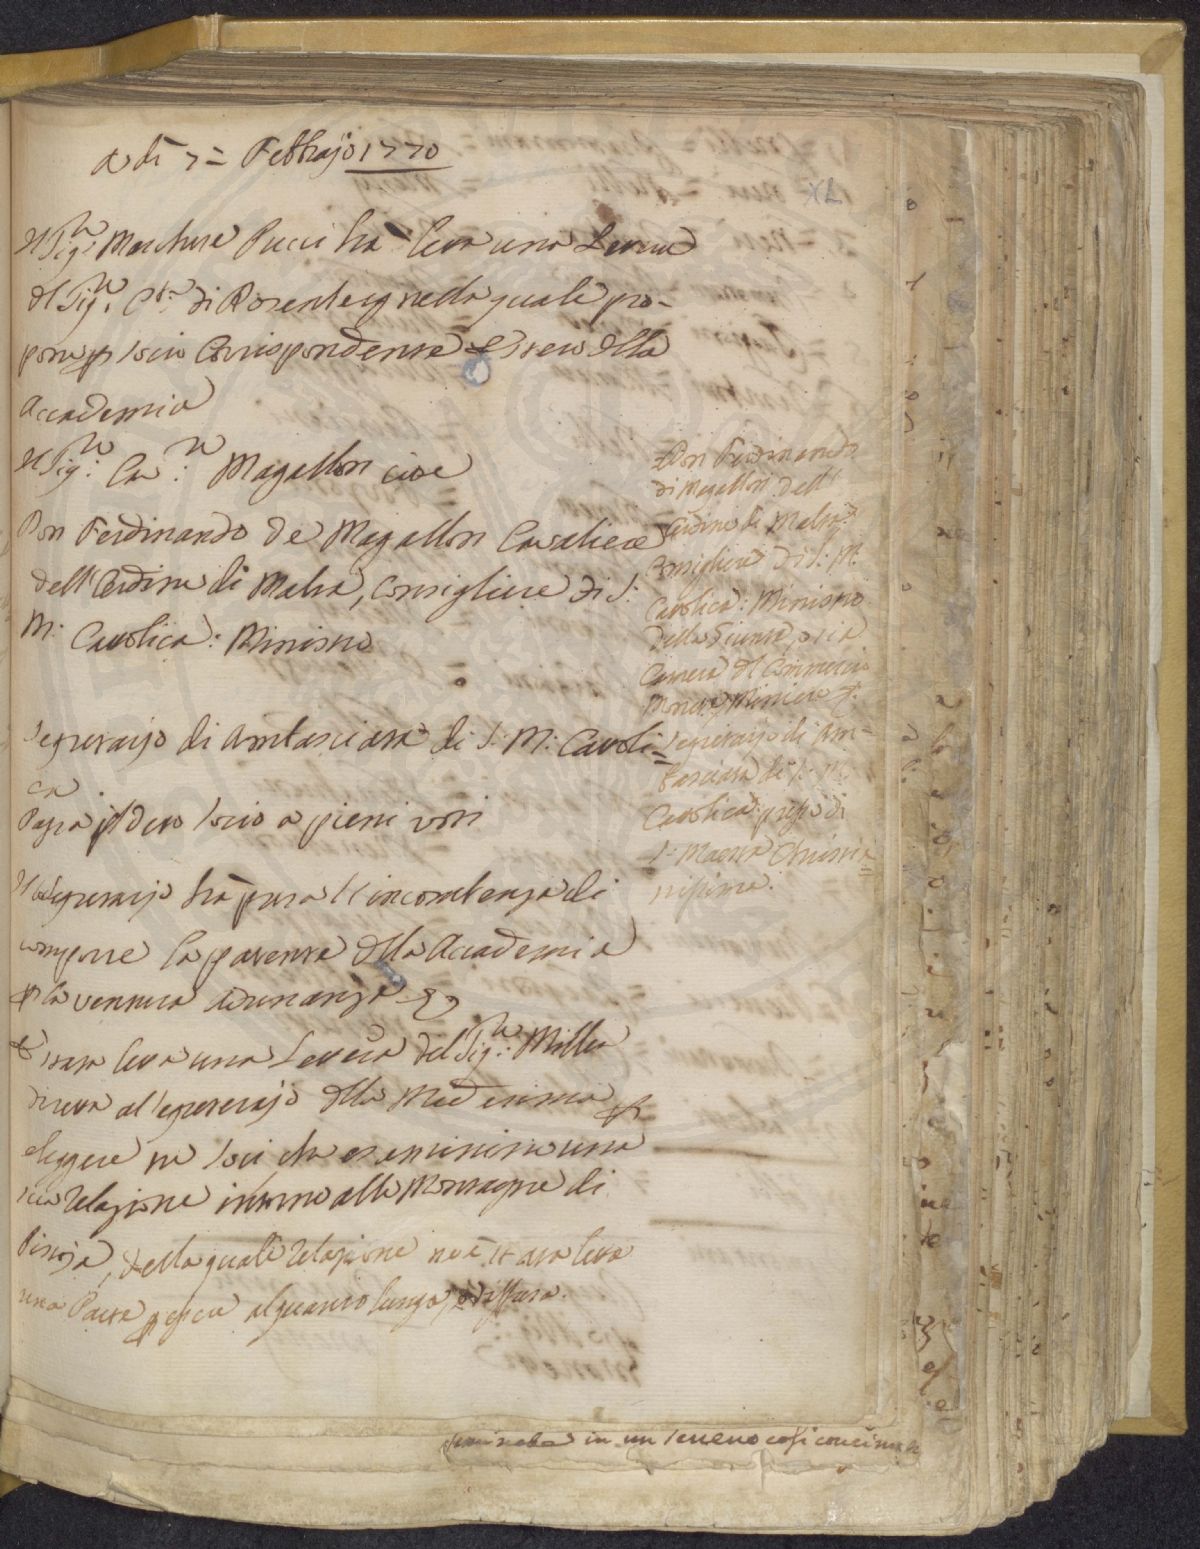 a dì 7 = Febbrajo 1770
XL
Il Sig.r Marchese Pucci hà letta una Lettera
del Sig.r C.te di Rosenberg nella quale pro-
pone p Socio Corrispondente Estero della
Accademia
Il Sig.r Cav.r Magallon cioè
Don Ferdinando de Magallon Cavaliere
dell'Ordine di Malta, Consigliere di S:
M: Cattolica: Ministro
Segretario di Ambasciata di S: M: Cattoli=
ca
Passa p detto Socio a pieni voti
Il Segretario hà presa l'incombenza di
comporre la patente della Accademia
p la ventura adunanza
È stata letta una Lettera del Sig.r Miller
diretta al Segretario della Medesima p
eleggere tre Soci che esaminino una
sua Relazione intorno alle Montagne di
Pistoja, della quale Relazione ne è stata letta
una Parte p esser alquanto lunga, e diffusa.
Don Ferdinando
di Magallon dell'
Ordine di Malta
Consigliere di S: M:
Cattolica: Ministro
della Giunta, o sia
Camera del Commercio
Moneta, Miniere &:
Segretario di Am=
basciata di S: M:
Cattolica: presso di
S: Maestà Christia=
nissima.
in un terreno così